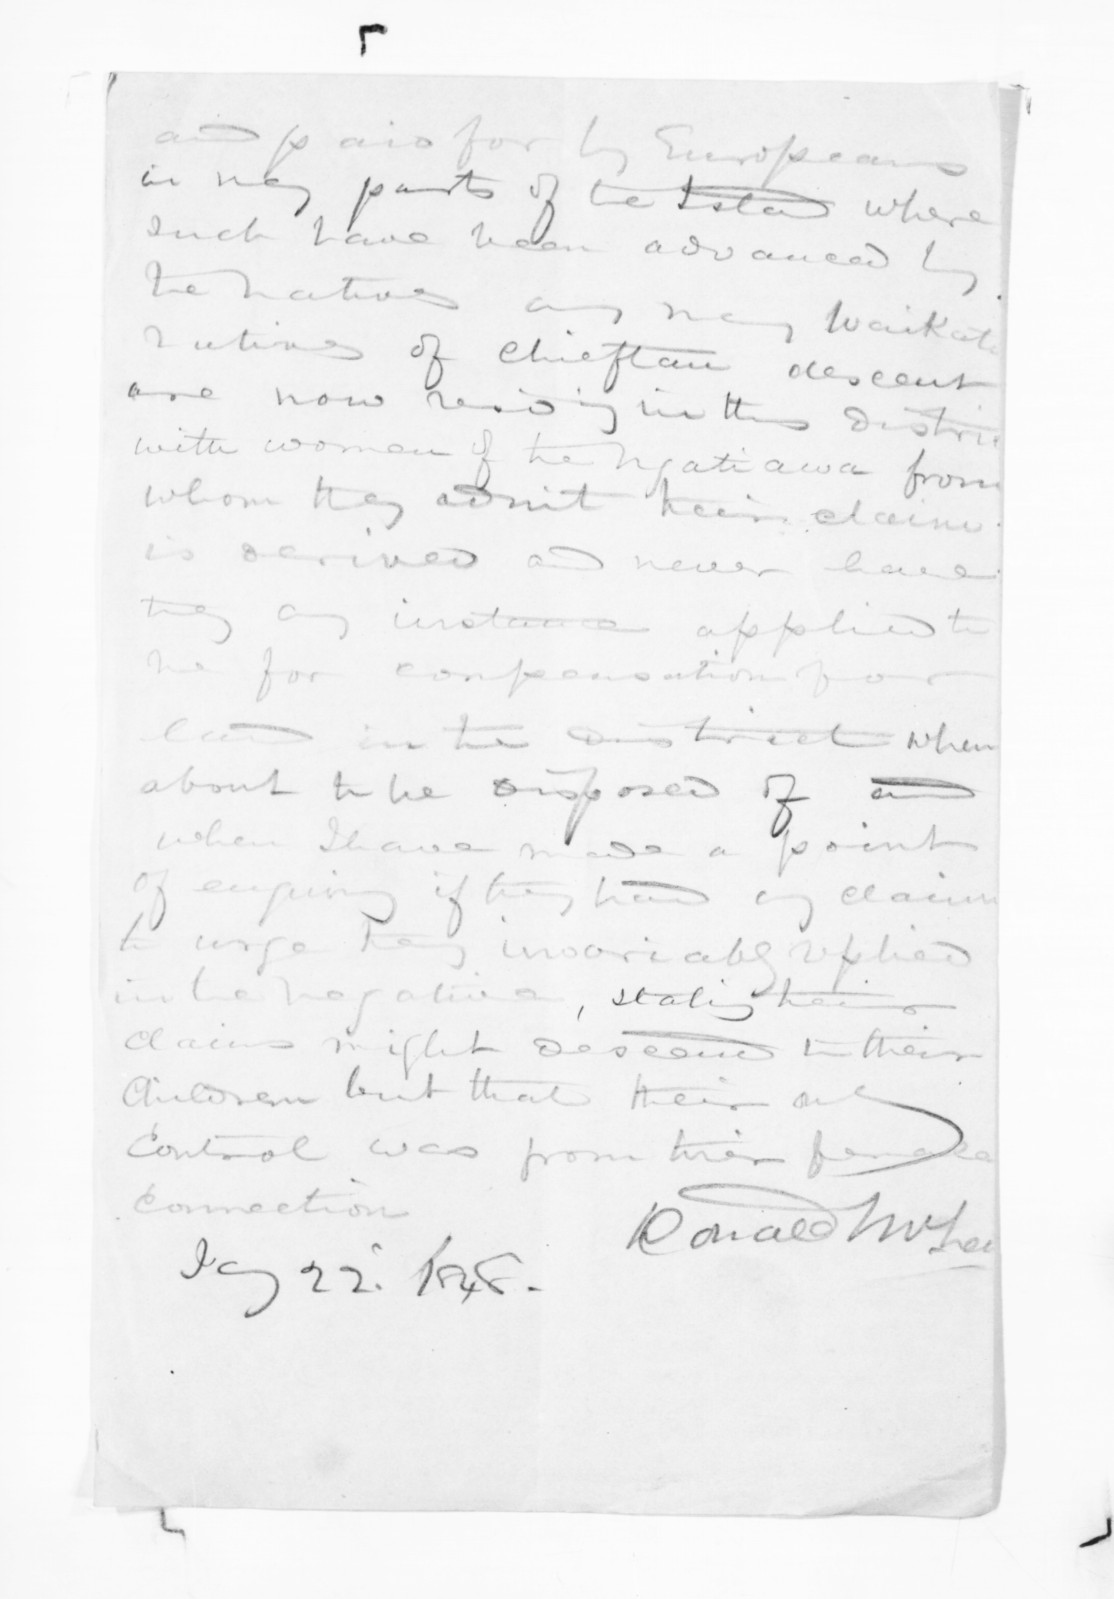 and paid for by Europeans
in many parts of the Island where
such have been advanced by
the natives any many Waikato
natives of chieftain descent
are now residing in this district
with women of the Ngatiawa from
whom they admit their claim
is derived and never have
they any instance applied to
me for compensation for
land in the district when
about to be disposed of and
when I have made a point
of enquiring if they had any claim
to urge they invariably replied
in the negative, stating their
claims might descend to their
children but that their only
control was from their female
connection
Donald McLean
Jany 22. 1848.